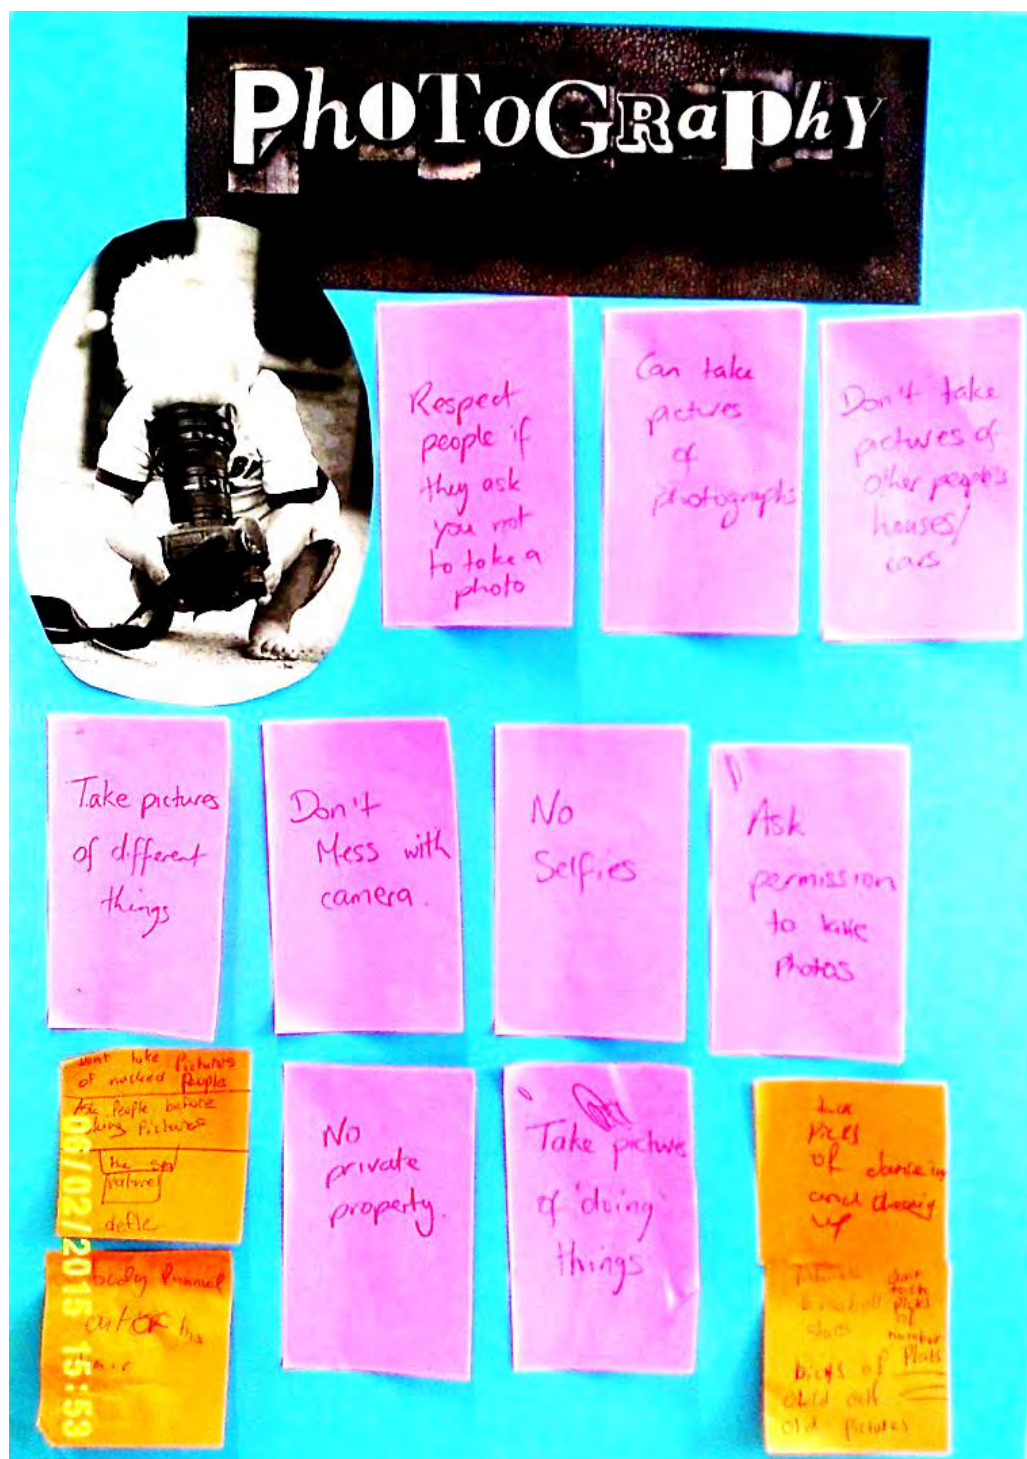 PhOToGRaphy
Respect
people if
they ask
you not
to take a
photo
Can take
pictures
of
photographs
Don't take
pictures of
other people's
houses/
cars
Take pictures
of different
things
Don't
Mess with
camera.
No
Selfies
Ask
permission
to take
Photos
dont take Pictures
of nacked People
Ask People before
Pictures
the sea
nature
No
private
property.
Take picture
of 'doing'
things
picks
of danceing
and
up
06/02/2015 15:53
dont
baseball picks
stars of
number
Plats
picks of
old pictures